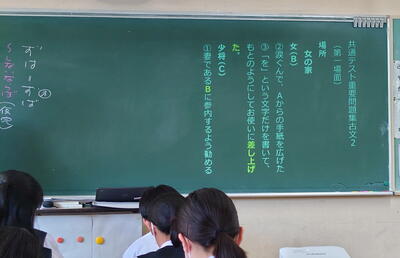 共通テスト重要問題集古文2
(第一場面)
場所
女の家
女(B)
②涙ぐんで、Aからの手紙を広げた
③「を」という文字だけを書いて、
もとのようにしてお使いに差し上げ
た。
少将(C)
①妻であるBに参内するよう勧める
ずは－ずば
～しなならば(仮定)